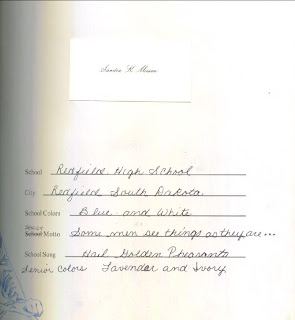 Sandra K.
School Redfield High School
City Redfield, South Dakota
School Colors Blue and White
Senior
School Motto Some men see things as they are...
School Song Hail Golden Pheasants
Senior Colors Lavendar and Ivory